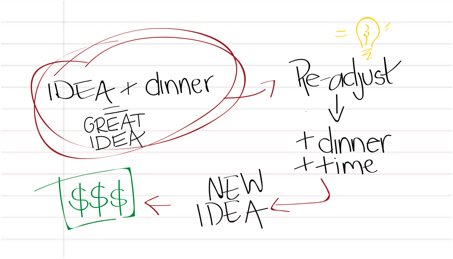 IDEA + dinner
=
GREAT
IDEA
Re-adjust
+dinner
++time
NEW
IDEA
$$$